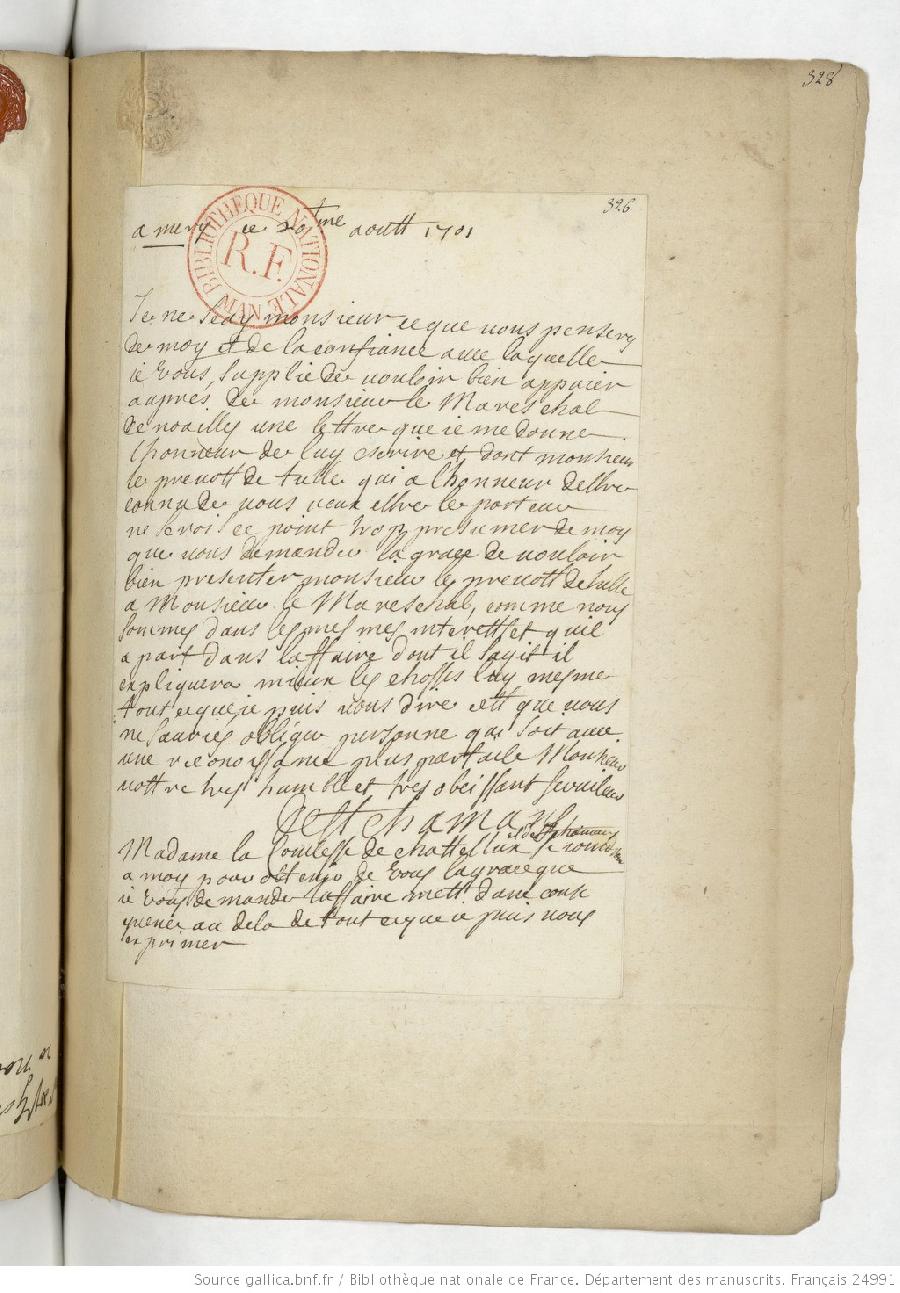 328
326
a mery ce 20me aoutt 1701
BIBLIOTHEQUE NATIONALE MAN
R.F.
Je ne scay monsieur ce que vous penserez
de moy et de la confiance avec laquelle
ie vous supplie de vouloir bien appuier
aupres de monsieur le Mareschal
de noailles une lettre que ie me donne
lhonneur de luy escrire et dont monsieur
le prevott de tulle qui a lhonneur desttre
connu de vous veux esttre le porteur
ne seroisce point trop presumer de moy
que vous demander la grace de vouloir
bien presenter monsieur le prevott de tulle
a Monsieur le Mareschal, comme nous
sommes dans les mesmes interetts et quil
a part dans laffaire dont il sagit il
expliquera mieux les chosses luy mesme
tout ceque ie puis vous dire estt que vous
ne sauries obliger personne qui soit avec
une reconoissance plus parfaite Monsieur
vottre tres humble et tres obeissant serviteur
Madame la Comtesse de chattellux se
a moy pour obtenir de vous la grace que
ie vous demande laffaire mett dune conse
quence au dela de tout ceque ie puis vous
exprimer
Source gallica.bnf.fr / Bibliothèque nationale de France. Département des manuscrits. Français 24991